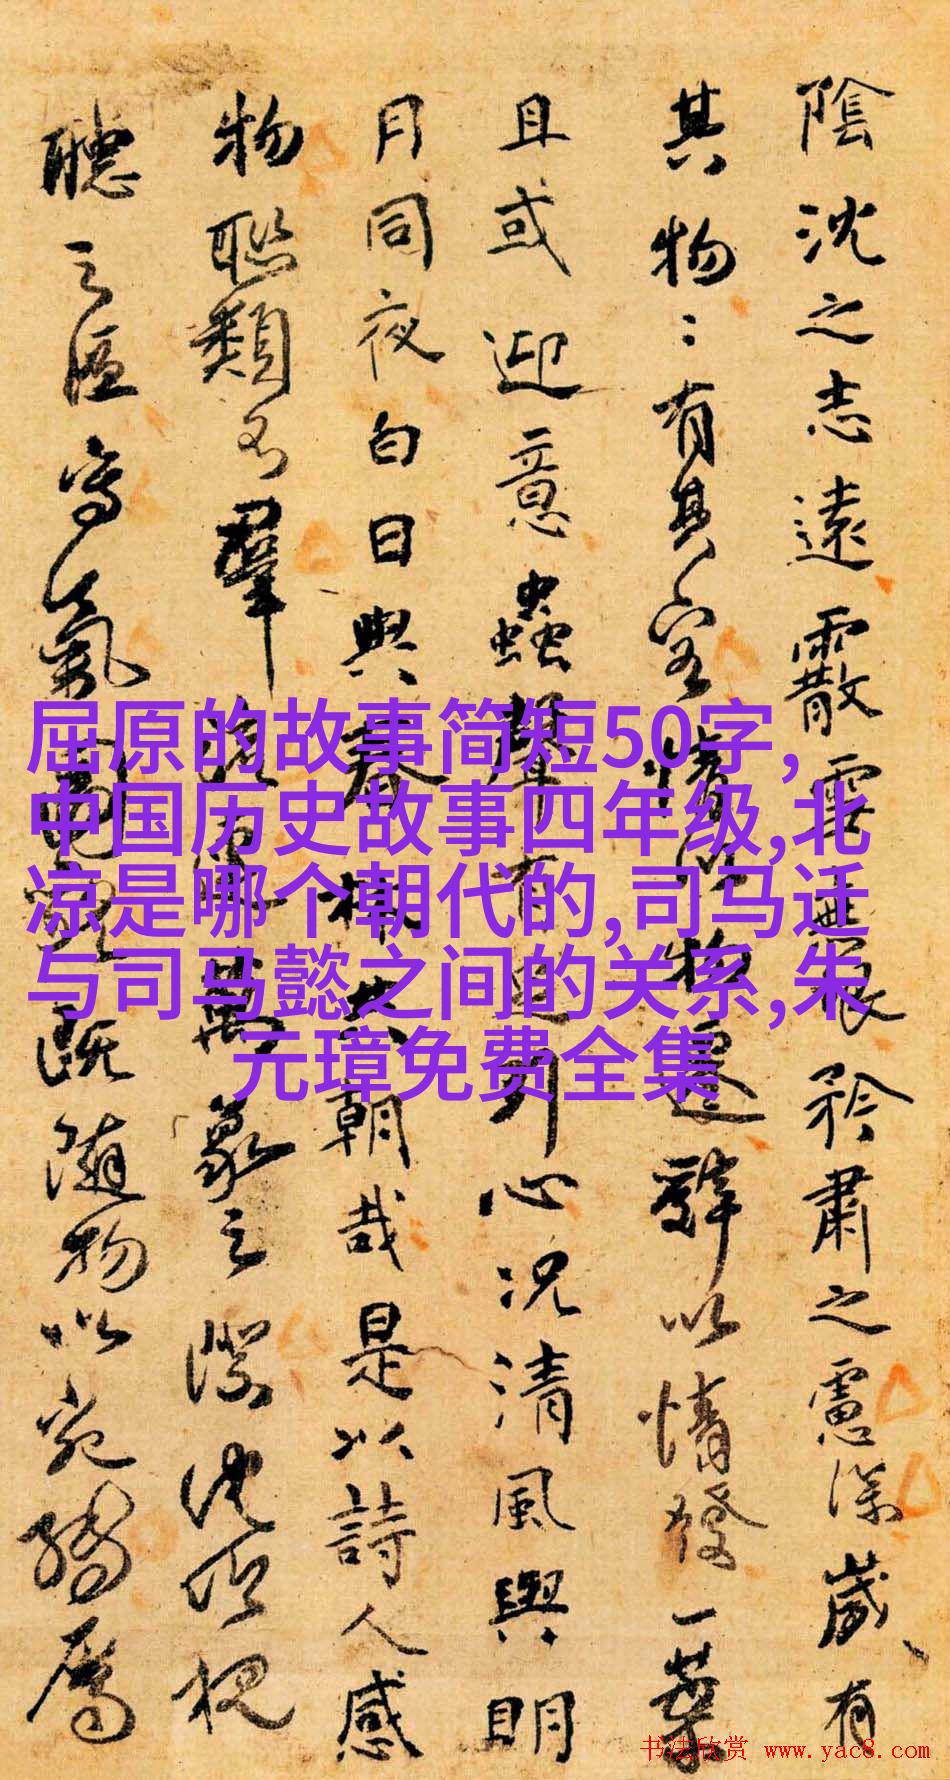 陰沈之志遠霰雪無垠矜肅之慮深歲有
其物〻有其容情以物遷辭以情發一葉
且或迎意蟲聲有足引心況清風與明
月同夜白日與春林共朝哉是以詩人感
物聯類不羣流連萬象之際沈吟視
聽之區寫氣圖皃既隨物以宛轉屬
屈原的故事简短50字,
中国历史故事四年级,北
凉是哪个朝代的,司马迁
与司马懿之间的关系,朱
元璋免费全集
书法欣赏 www.yac8.com